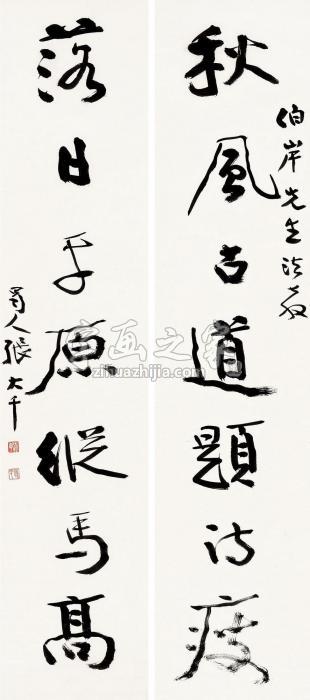 伯岸先生法教
秋風古道題詩瘦
落日平原縱馬高
蜀人張大千
字画之家
www.zihuazhijia.com